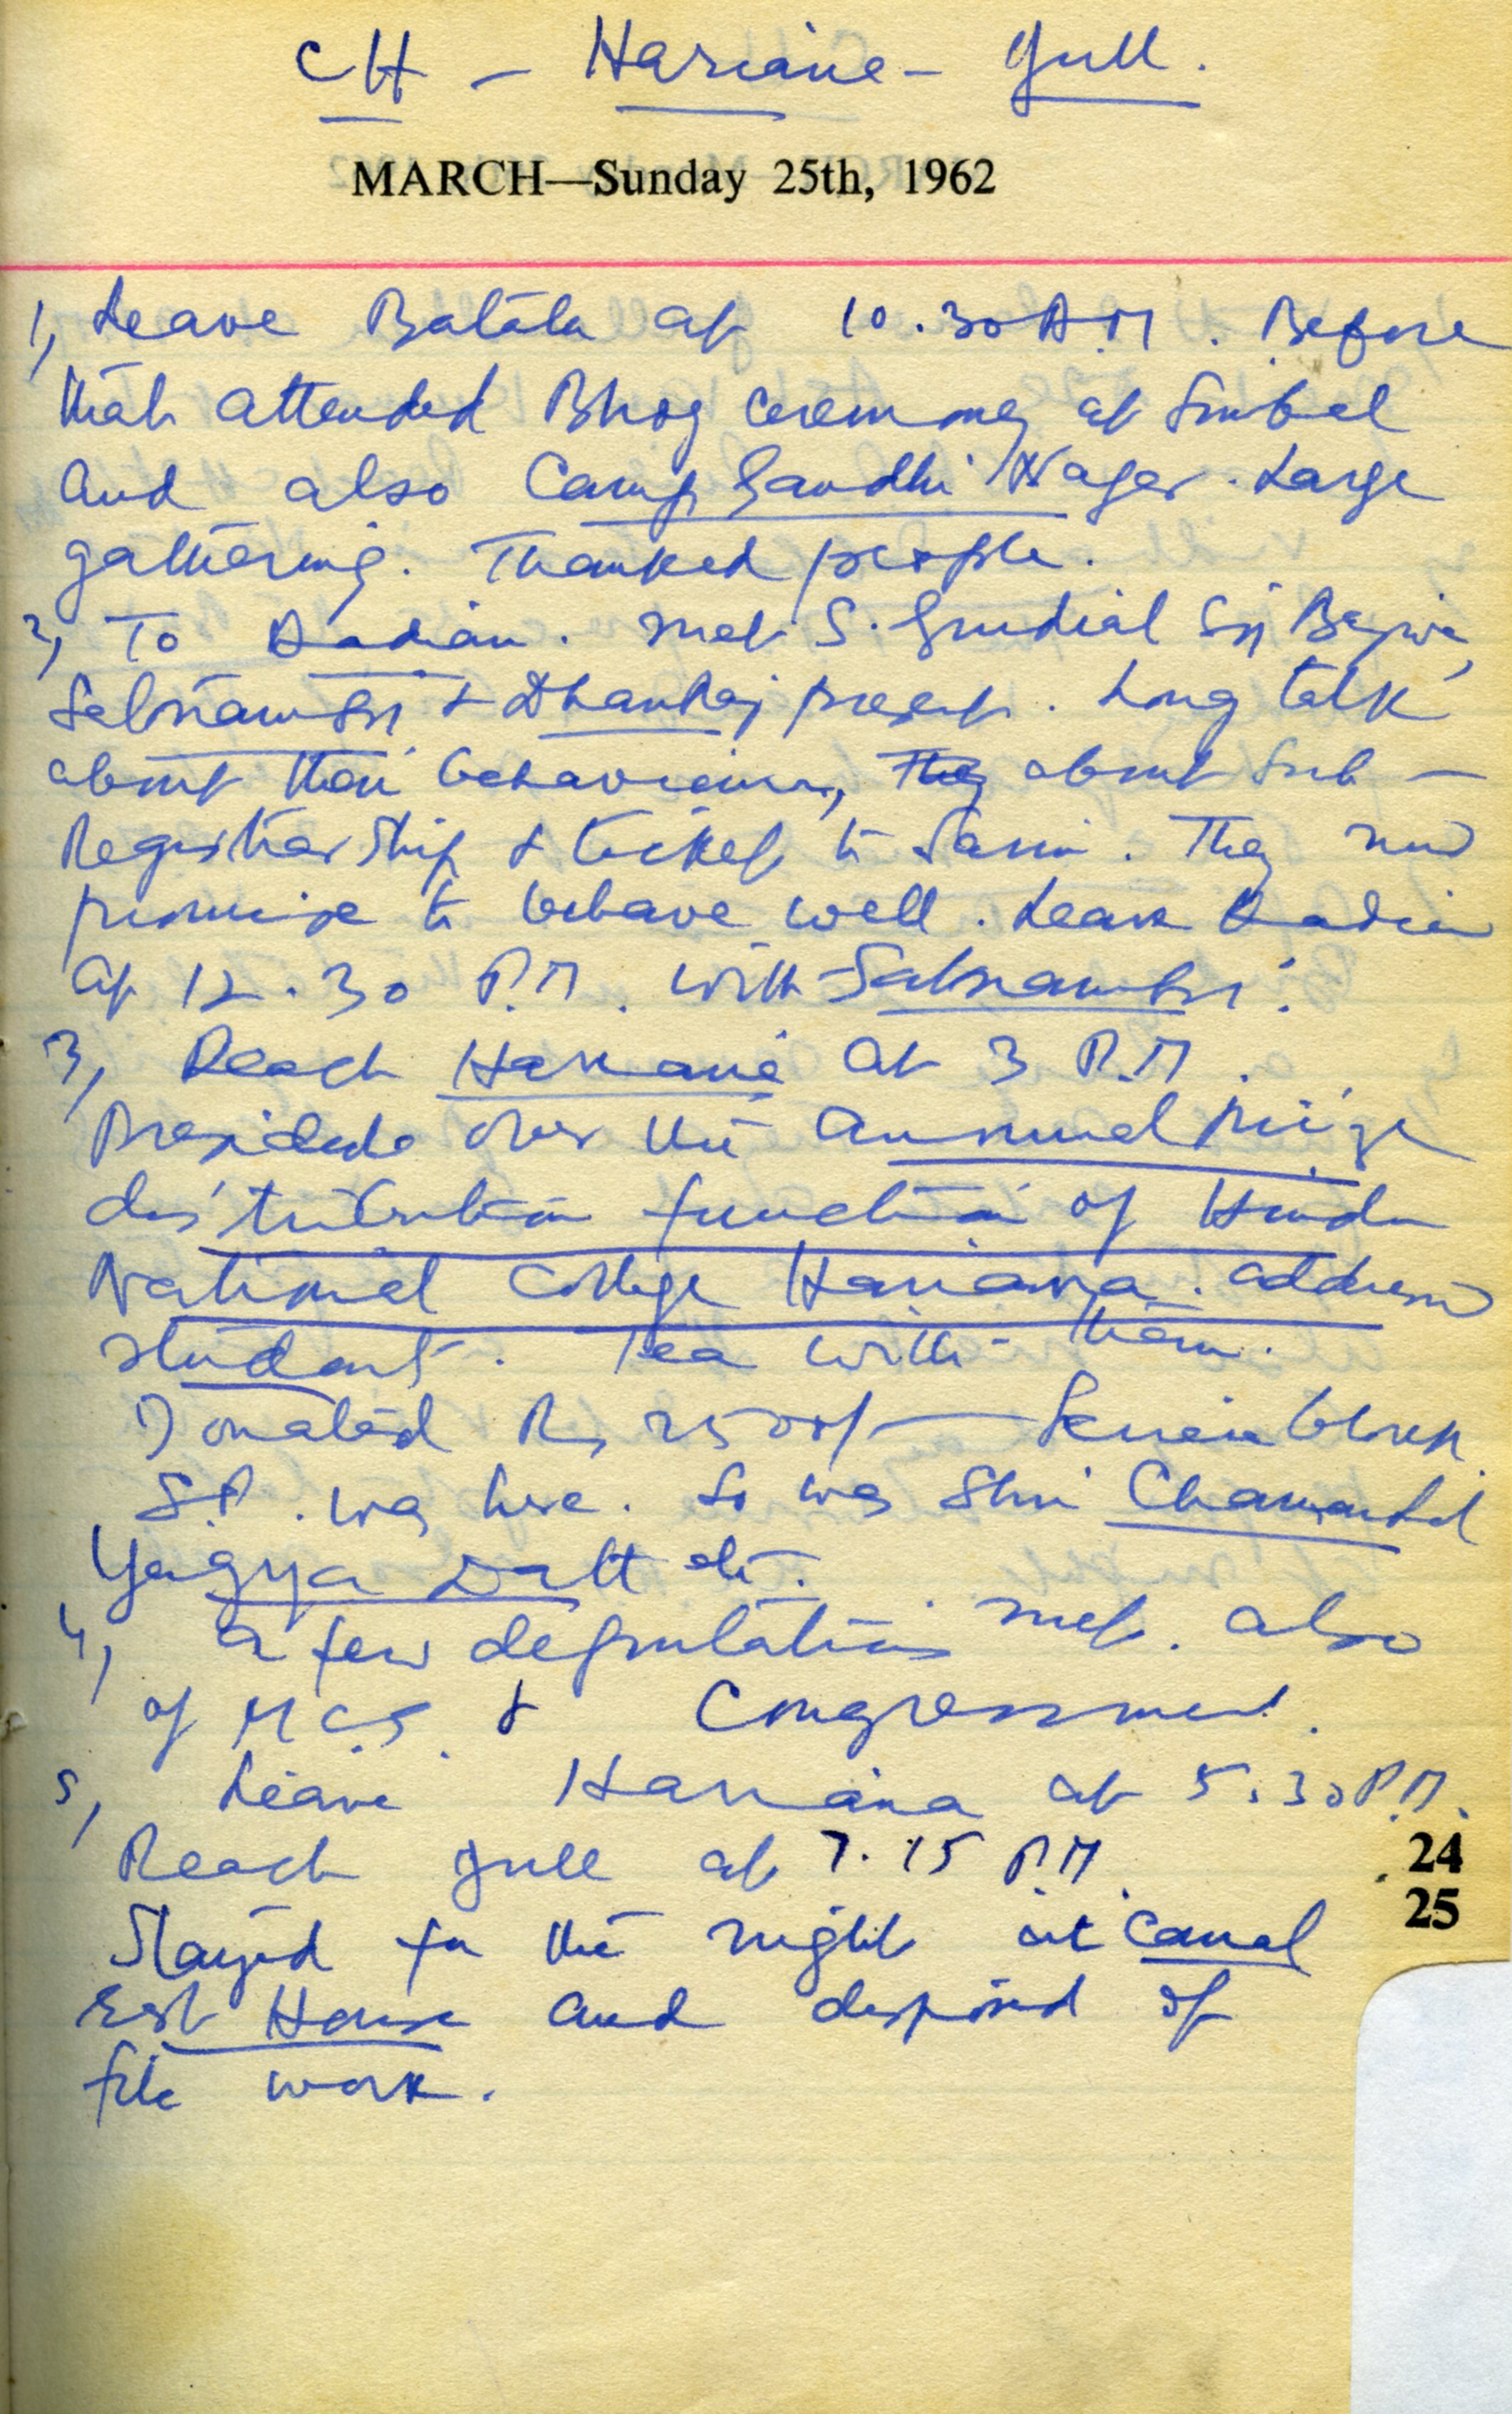 CH - Hariana - Gull.
MARCH—Sunday 25th, 1962
1, Leave Batala at 10.30 A.M. Before
that attended Bhog ceremony at Simbal
and also Camp Gandhi Nagar. Large
gathering. Thanked people.
2, To Kadian. Met S. Gurdial Sg Bajwa,
Satnam Sg & Dhanraj present. Long talk
about their behaviour, They about Sub-
Registrarship & ticket to Sami. They now
promise to behave well. Leave Kadian
at 12.30 P.M. with Satnam Sg.
3, Reach Hariana at 3 P.M.
Presided over the annual Prize
distribution function of Hindu
National College Hariana. address
student. Tea with them.
Donated Rs 2500/- Science block.
S.P. was here. So was Shri Chamanlal
Yagya Datt etc.
4, a few deputations met. also
of M.C.S. & Congressmen.
5, Leave Hariana at 5.30 P.M.
Reach Gull at 7.15 P.M.
Stayed for the night at Canal
rest House and disposed of
file work.
24
25